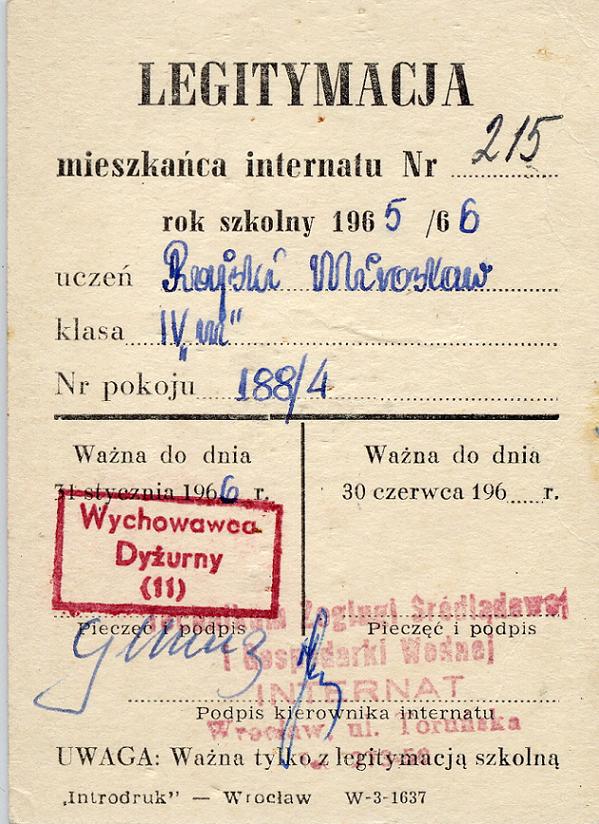 LEGITYMACJA
mieszkańca internatu Nr 215
rok szkolny 1965/66
uczeń Rajski Mirosław
klasa IV „m"
Nr pokoju 188/4
Ważna do dnia
31 stycznia 1966 r.
Ważna do dnia
30 czerwca 196.....r.
Wychowawca
Dyżurny
(11)
Pieczęć i podpis
Pieczęć i podpis
Żeglugi Śródlądowej
i Gospodarki Wodnej
INTERNAT
Podpis kierownika internatu
Wrocław, ul. Toruńska
UWAGA: Ważna tylko z legitymacją szkolną
„Introdruk” — Wrocław W-3-1637